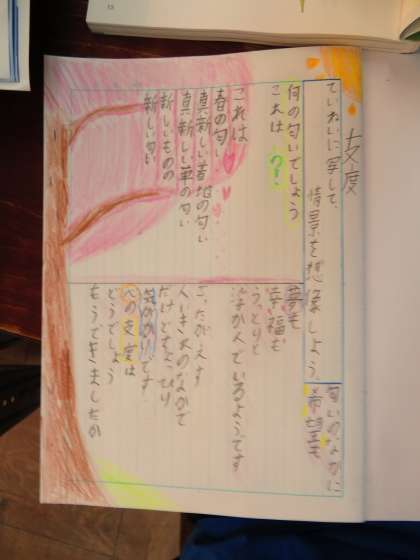 支度
ていねいに写して、情景を想像しよう。
何の匂いでしょう
これは ?
これは
春の匂い
真新しい着地の匂い
真新しい革の匂い
新しいものの
新しい匂い
匂いのなかに
希望も
夢も
幸福も
うっとりと
浮かんでいるようです
ごったがえす
人いきれのなかで
だけどちょっぴり
気がかりです
心の支度は
どうでしょう
もうできましたか